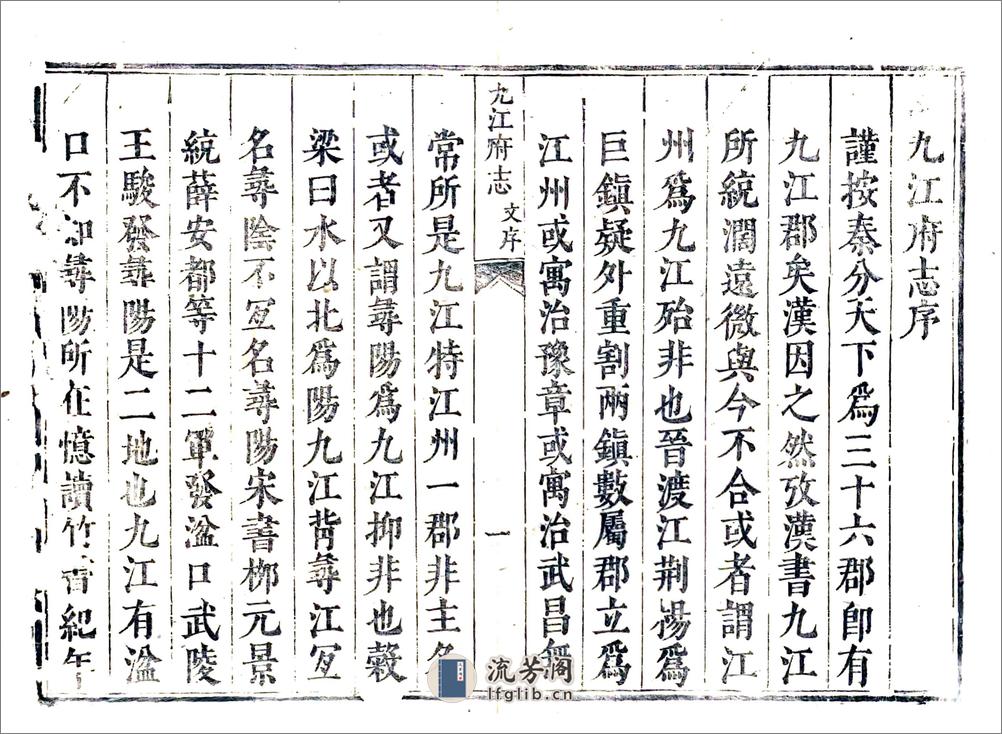 九江府志序
謹按秦分天下爲三十六郡即有
九江郡矣漢因之然攷漢書九江
所統濶遠微與今不合或者謂江
州爲九江殆非也晉渡江荆楊爲
巨鎭疑外重割兩鎭數屬郡立爲
江州或寓治豫章或寓治武昌無
九江府志 文序 一
常所是九江特江州一郡非主名
或者又謂尋陽爲九江抑非也榖
梁曰水以北爲陽九江背尋江宜
名尋陰不宜名尋陽宋書栁元景
統薛安都等十二軍發湓口武陵
王駿發尋陽是二地也九江有湓
口不知尋陽所在憶讀竹書紀年
流芳阁
lfglib.cn